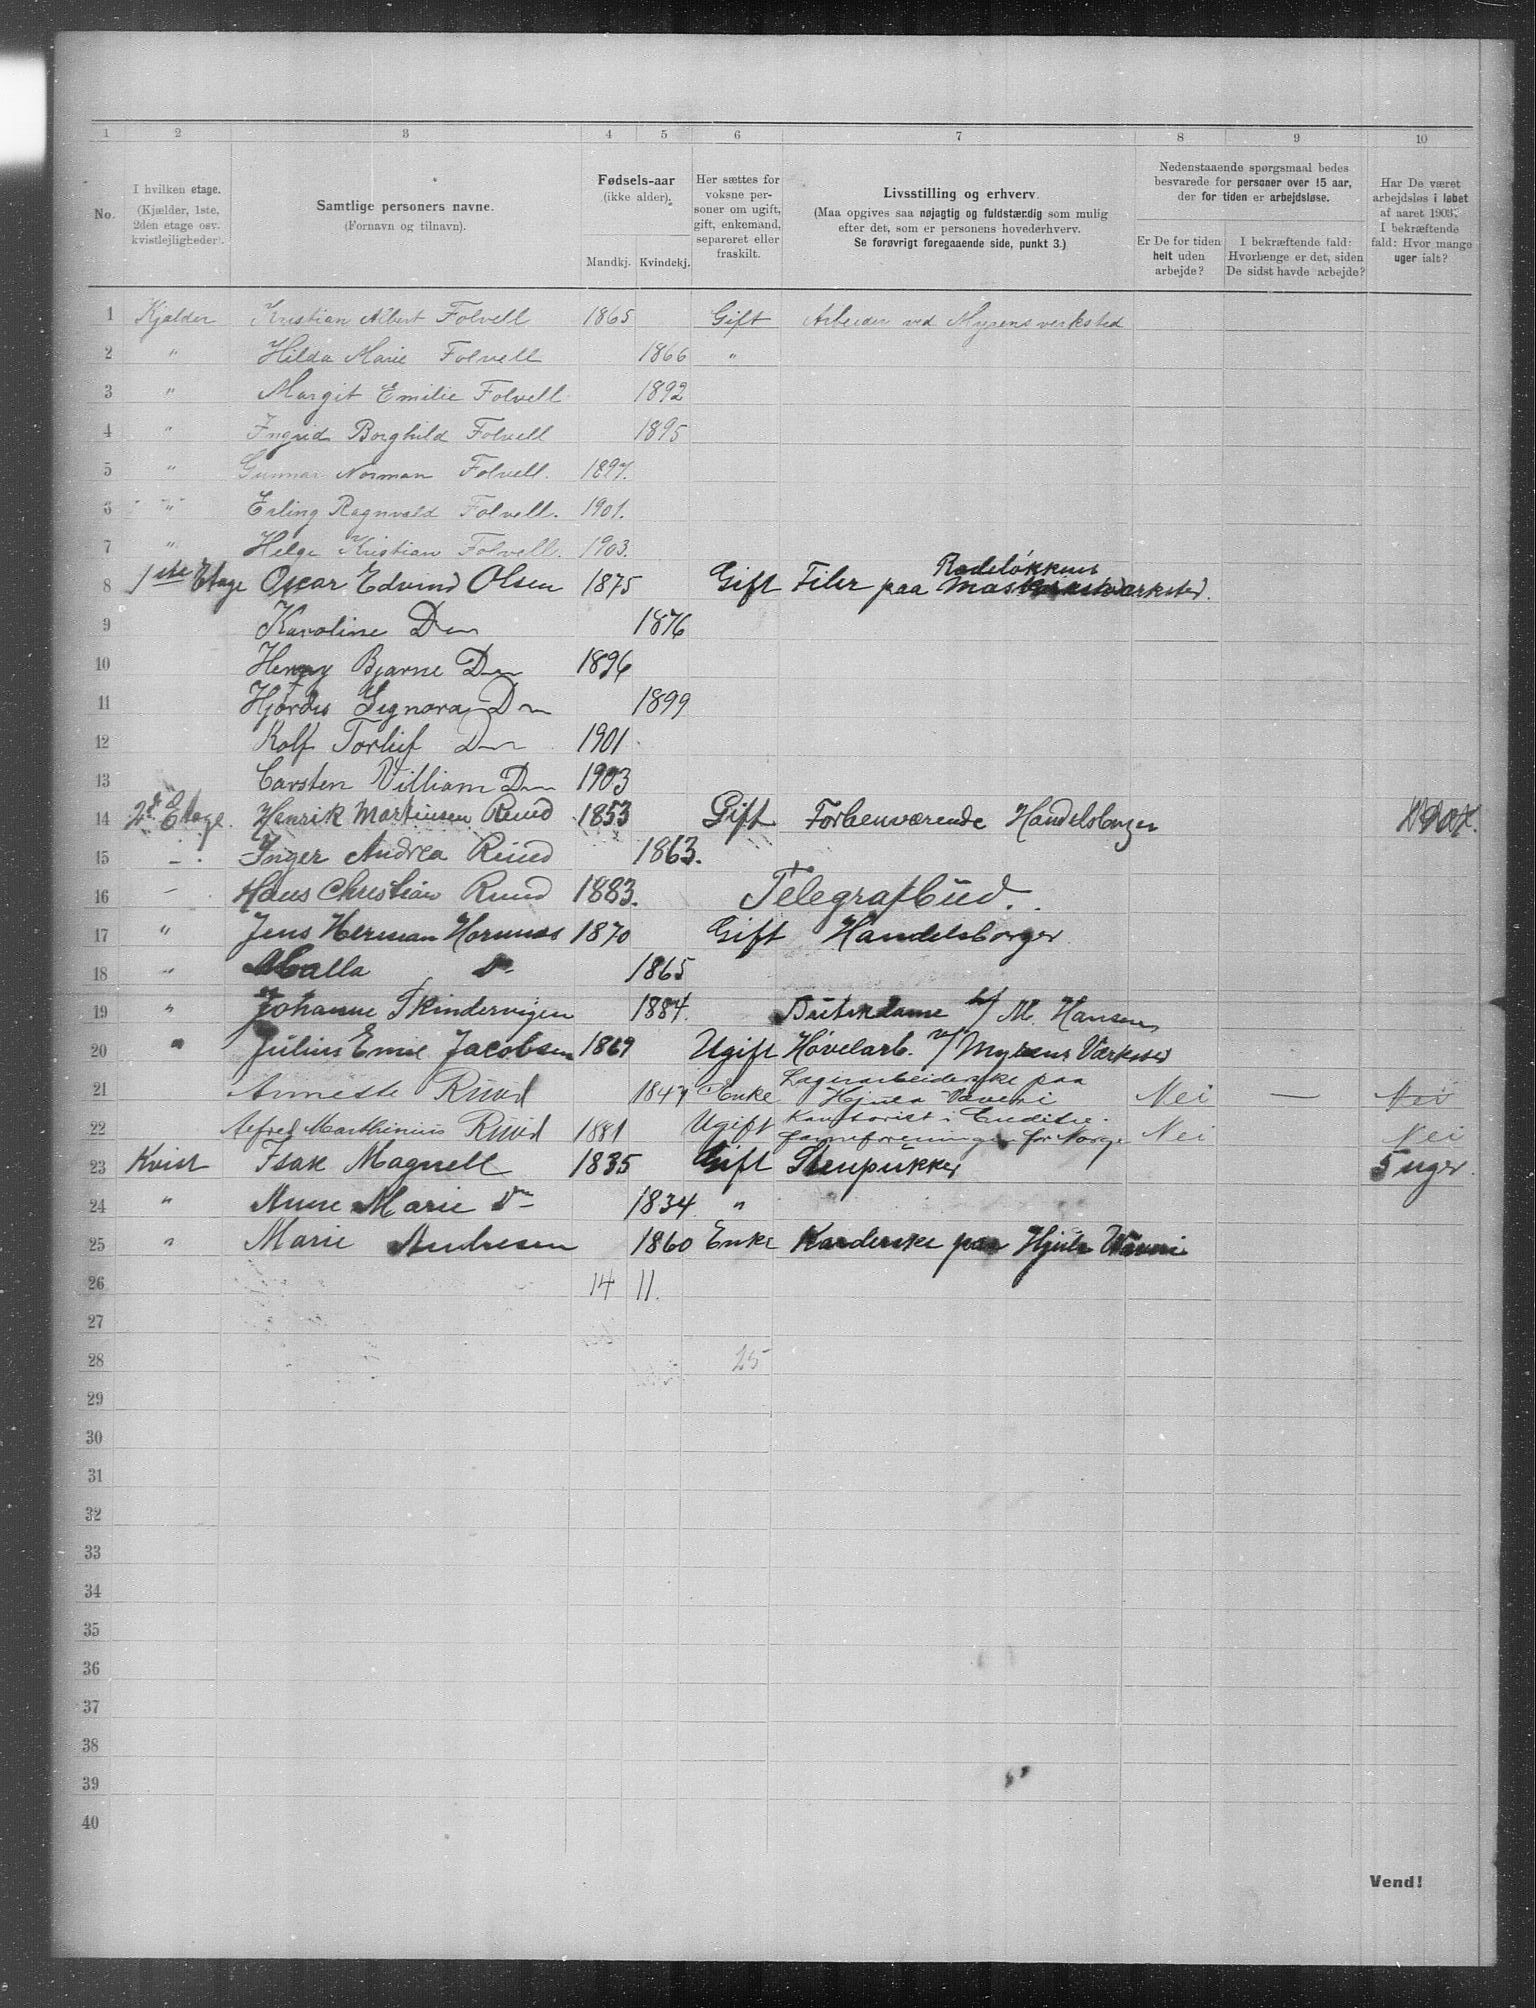 1 2 3 4 5 6 7 8 9 10
No.
I hvilken etage.
(Kjælder, 1ste,
2den etage osv.
kvistlejligheder).
Samtlige personers navne.
(Fornavn og tilnavn).
Fødsels-aar
(ikke alder).
Mandkj. Kvindekj.
Her sættes for
voksne per-
soner om ugift,
gift, enkemand,
separeret eller
fraskilt.
Livsstilling og erhverv.
(Maa opgives saa nøjagtig og fuldstændig som mulig
efter det, som er personens hovederhverv.
Se forøvrigt foregaaende side, punkt 3.)
Nedenstaaende spørgsmaal bedes
besvarede for personer over 15 aar,
der for tiden er arbejdsløse.
Er De for tiden
helt uden
arbejde?
I bekræftende fald:
Hvorlænge er det, siden
De sidst havde arbejde?
Har De været
arbejdsløs i løbet
af aaret 1903?
I bekræftende
fald: Hvor mange
uger ialt?
1 Kjælder Kristian Albert Folvell 1865 Gift Arbeider ved Myrens verksted
2 " Hilda Marie Folvell 1866 "
3 " Margit Emilie Folvell 1892
4 " Ingrid Borghild Folvell 1895
5 " Gunnar Norman Folvell. 1897.
6 " Erling Ragnvald Folvell. 1901.
7 " Helge Kristian Folvell. 1903.
8 1ste Etage Oscar Edvind Olsen 1875 Gift Filer paa Rodeløkkens
9 Karoline Do 1876
10 Henry Bjarne Do 1896
11 Hjørdis Signora Do 1899
12 Rolf Torluf Do 1901
13 Carsten Villiam Do 1903
14 2d Etage. Henrik Martinsen Ruud 1853 Gift Forhenværende Handelsborger
15 - Inger Andrea Ruud 1863.
16 - Hans Christian Ruud 1883. Telegrafbud.
17 " Jens Herman 1870 Gift Handelsborger
18 " Do 1865
19 " Johanne Skindervigen 1884. b/ M. Hansen
20 " Julius Emil Jacobsen 1869 Ugift Høvelarb. v/ Myrens Værksted
21 Anneste Ruud 1847 Enke Lagerarbeiderske paa Hjula Væveri Nei — Nei
22 Alfred Marthinius Ruud 1881 Ugift Kontorist i Kreditor- foreningen for Norge Nei Nei
23 Kvist Isak Magnell 1835 Gift Stenpukker 5 uger.
24 " Anne Marie Do 1834 "
25 " Marie Andresen 1860 Enke Karderske paa Hjula Væveri
26 14 11.
27
28 25
29
30
31
32
33
34
35
36
37
38
39
40
Vend!